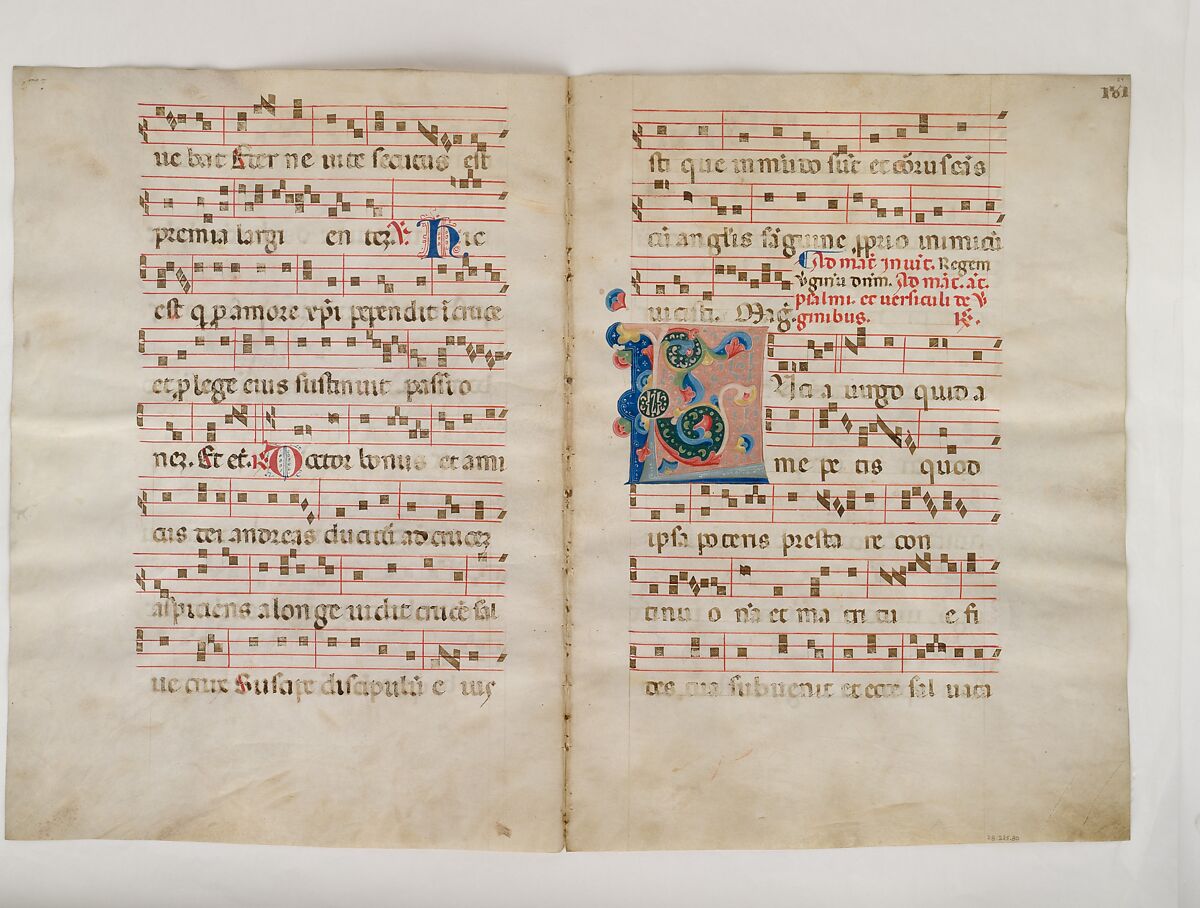 ue bat Eter ne uite secutus est
premia largi en tez. V. hic
est q p amore xpi pependit i cruce
et p lege eius sustinuit passio
nez. Et et. R Doctor bonus et ami
cus dei andreas ducitur ad crucez
aspiciens a longe uidit crucē sal
ue crux Suscipe discipulū e ius
181
sti que in mūdo sūt et cōruscās
angl'is sāguine pprio inimicū
Ad mat. inuit. Regem
v̄ginū dnm. Ad mat. āt.
psalmi. et versiculi de v̄
uicisti. Mag. ginibus. R.
cia uirgo quid a
me pe tis quod
ipsa poteris presta re con
tinu o nā et ma tri tu e fi
des tua subuenit et ecce sal uata
28.225.80